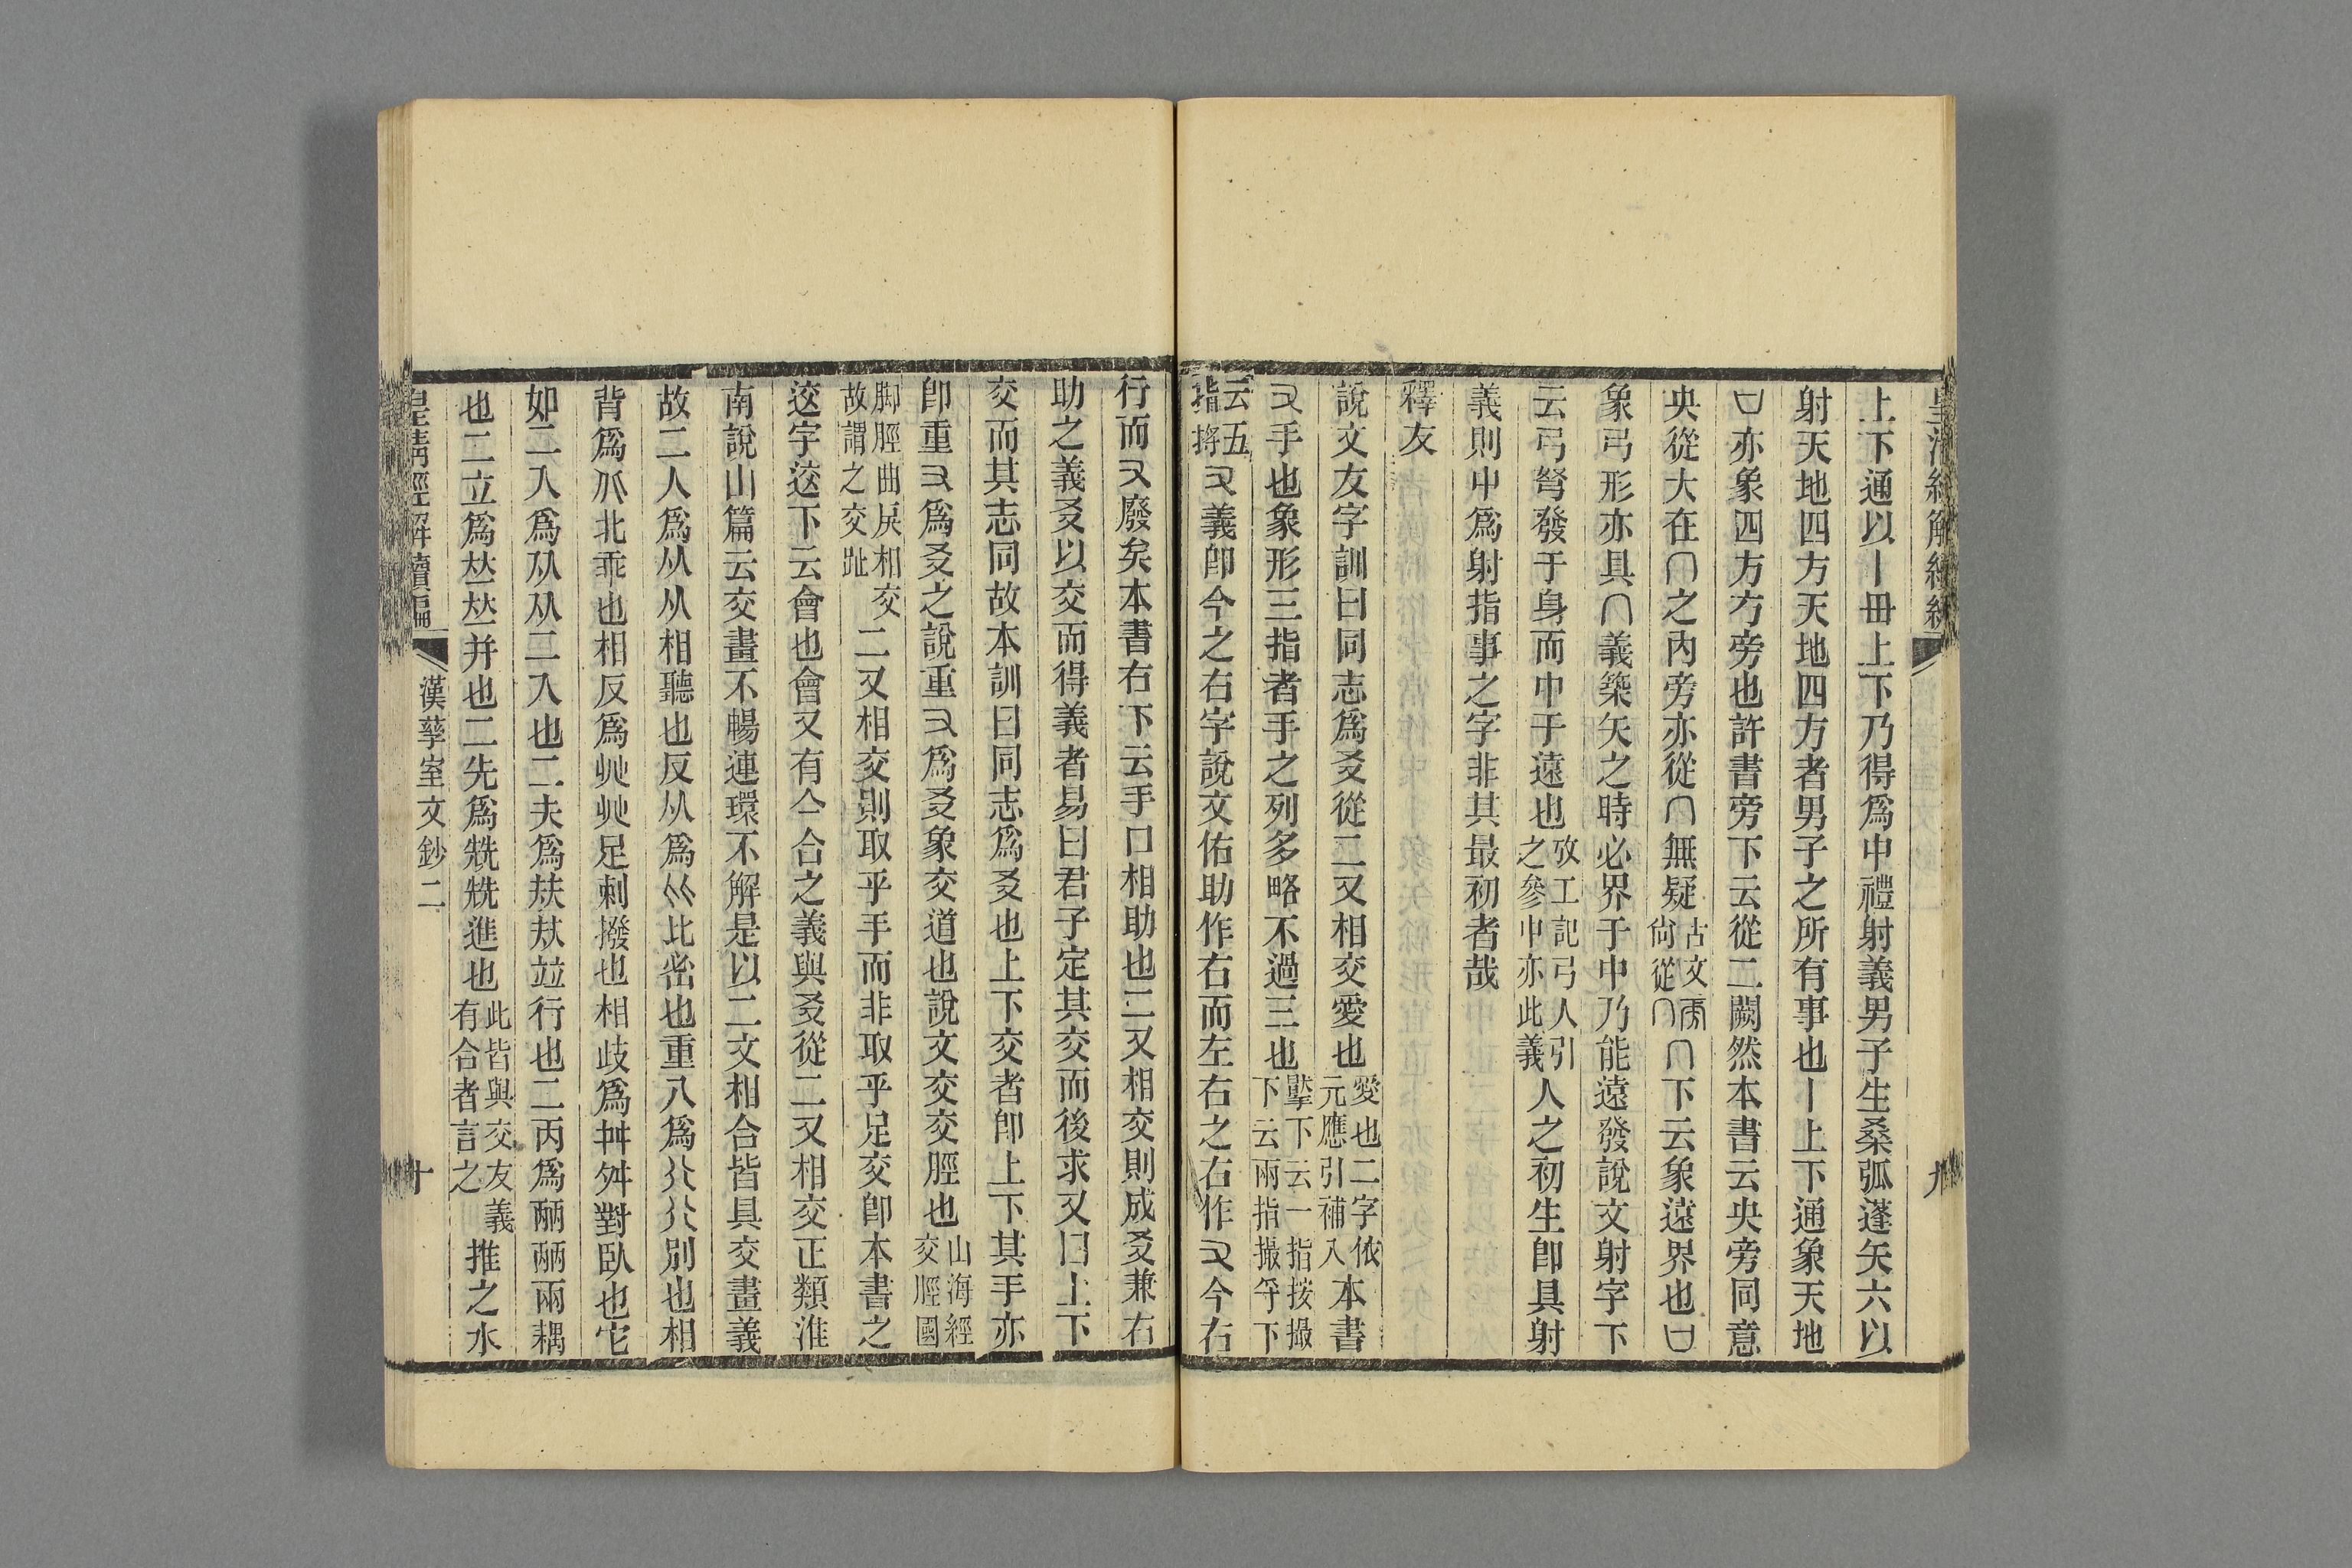 上下通以丨毌上下乃得爲中禮射義男子生桑弧蓬矢六以
射天地四方天地四方者男子之所有事也丨上下通象天地
凵亦象四方方旁也許書旁下云從二闕然本書云央旁同意
央從大在冂之內旁亦從冂無疑古文㫄尙從冂冂下云象遠界也凵
象弓形亦具冂義築矢之時必界于中乃能遠發說文射字下
云弓弩發于身而中于遠也攷工記弓人引之參中亦此義人之初生卽具射
義則中爲射指事之字非其最初者哉
釋友
說文友字訓曰同志爲㕛從二又相交愛也愛也二字依元應引補入本書
又手也象形三指者手之列多略不過三也擪下云一指按撮下云兩指撮寽下
云五指捋又義卽今之右字說文佑助作右而左右之右作又今右
行而又廢矣本書右下云手口相助也二又相交則成㕛兼右
助之義㕛以交而得義者易曰君子定其交而後求又曰上下
交而其志同故本訓曰同志爲㕛也上下交者卽上下其手亦
卽重又爲㕛之說重又爲㕛象交道也說文交交脛也山海經交脛國
脚脛曲戾相交故謂之交趾二又相交則取乎手而非取乎足交卽本書之
䢒字䢒下云會也會又有亼合之義與㕛從二又相交正類淮
南說山篇云交畫不暢連環不解是以二文相合皆具交畫義
故二人爲从从相聽也反从爲比比密也重八爲𠔁𠔁別也相
背爲北北乖也相反爲癶癶足剌撥也相歧爲舛舛對臥也它
如二入爲㒰㒰二入也二夫爲㚘㚘竝行也二丙爲𠕪𠕪兩耦
也二立爲竝竝并也二先爲兟兟進也此皆與交友義有合者言之推之水
皇淸經解續編
漢孳室文鈔二
十
九